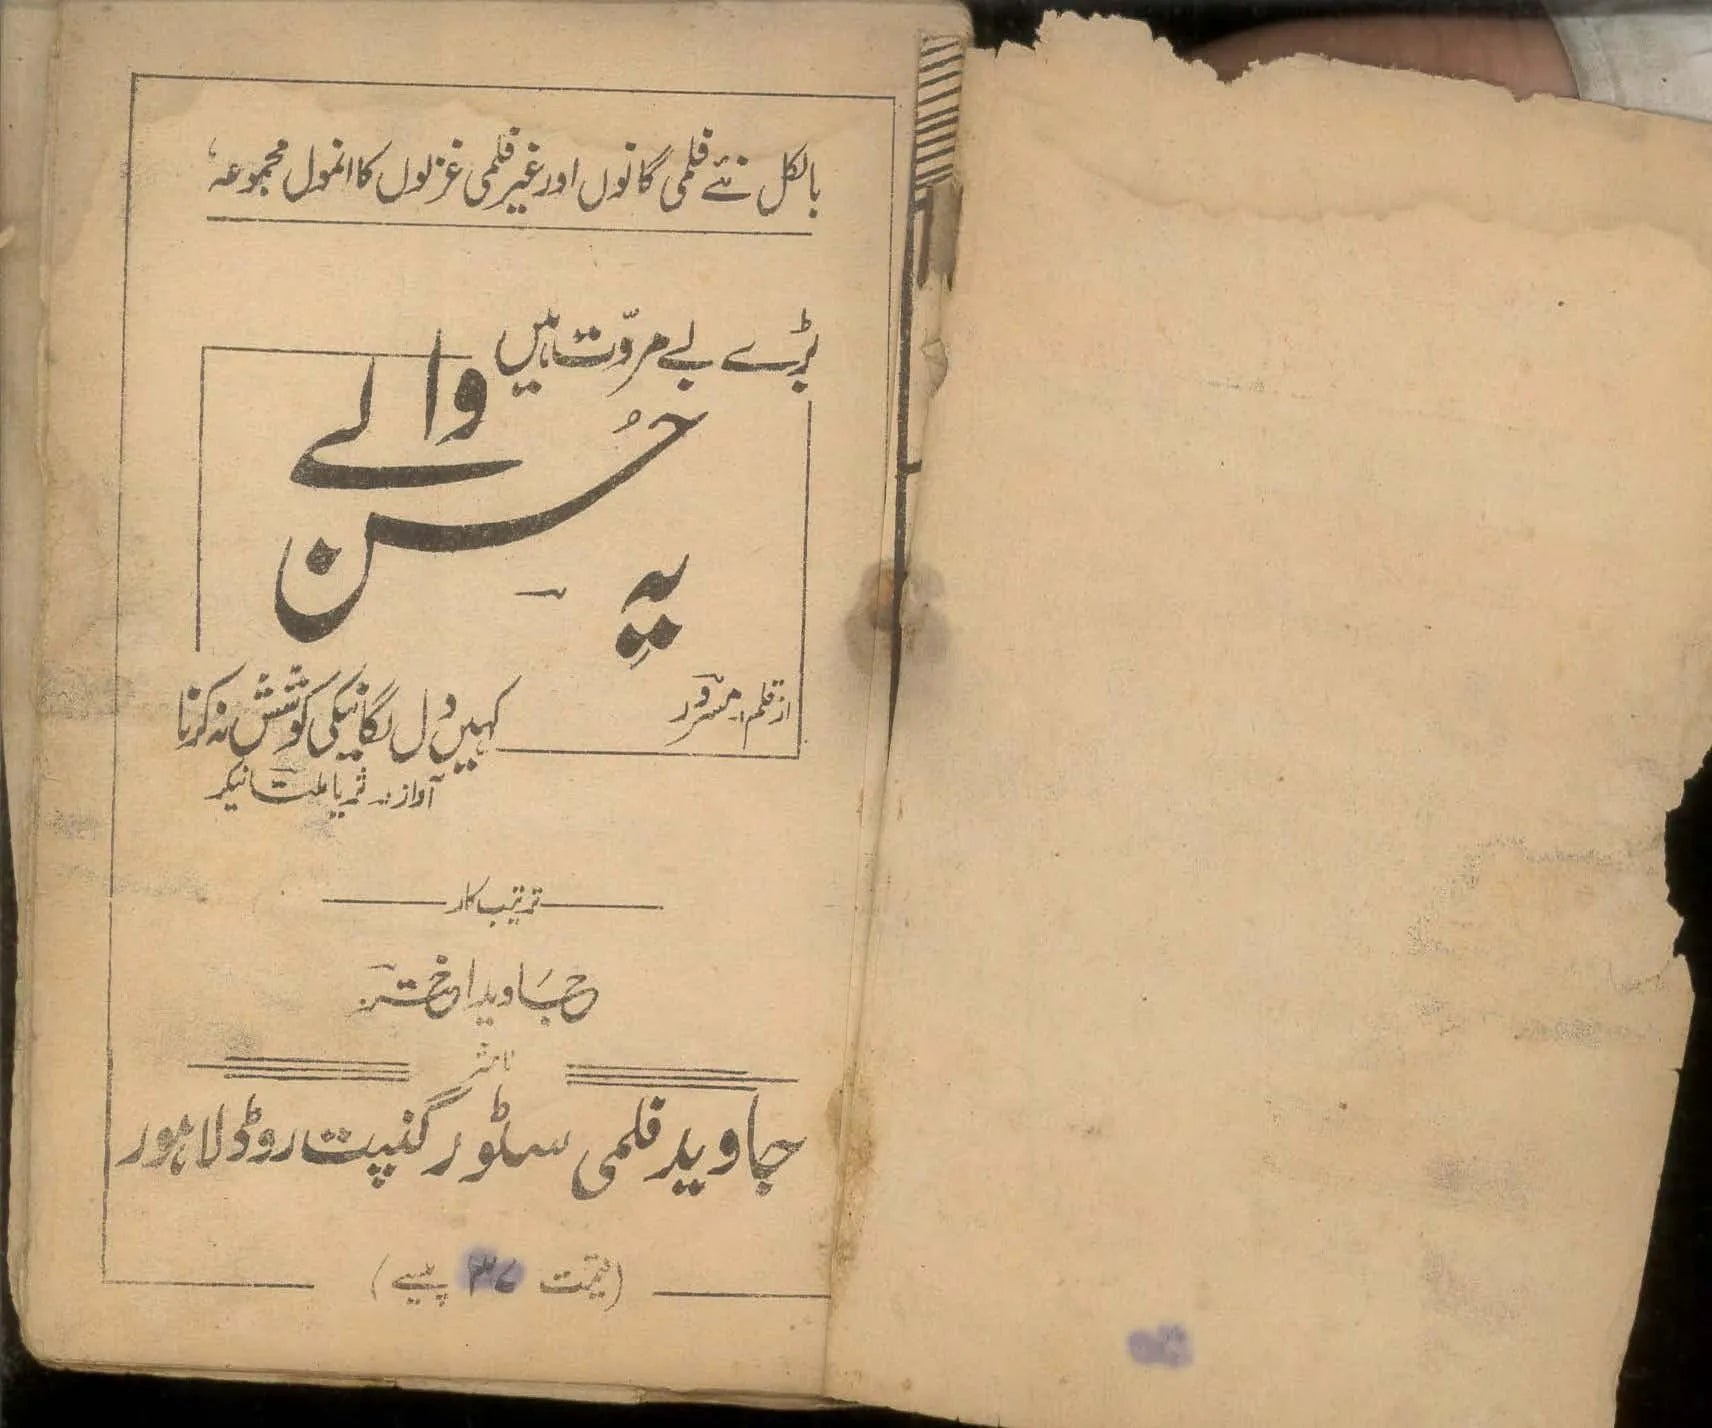 بالکل نئے فلمی گانوں اور غیر فلمی غزلوں کا انمول مجموعہ
بڑے بے مروّت ہیں
یہ حُسن والے
از قلم:۔ مسرور
کہیں دل لگانیکی کوشش نہ کرنا
آواز:۔ ثریا ملتانیکر
ترتیب کار
جاوید اختر
ناشر
جاوید فلمی سٹور گنپت روڈ لاہور
(قیمت ۳۷ پیسے)